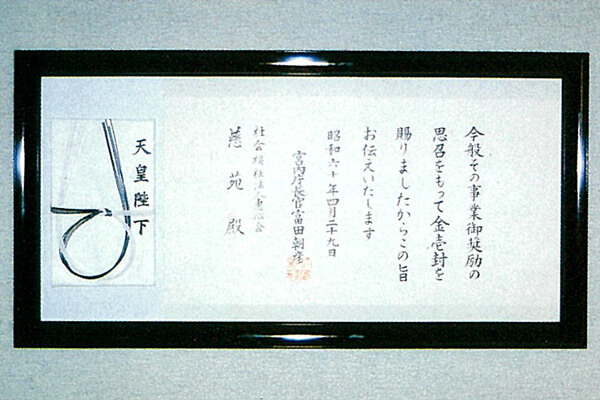 今般その事業御奨励の
思召をもって金壱封を
賜りましたからこの旨
お伝えいたします
昭和六十年四月二十九日
宮内庁長官富田朝彦
社会福祉法人恵心会
慈苑殿
天皇陛下